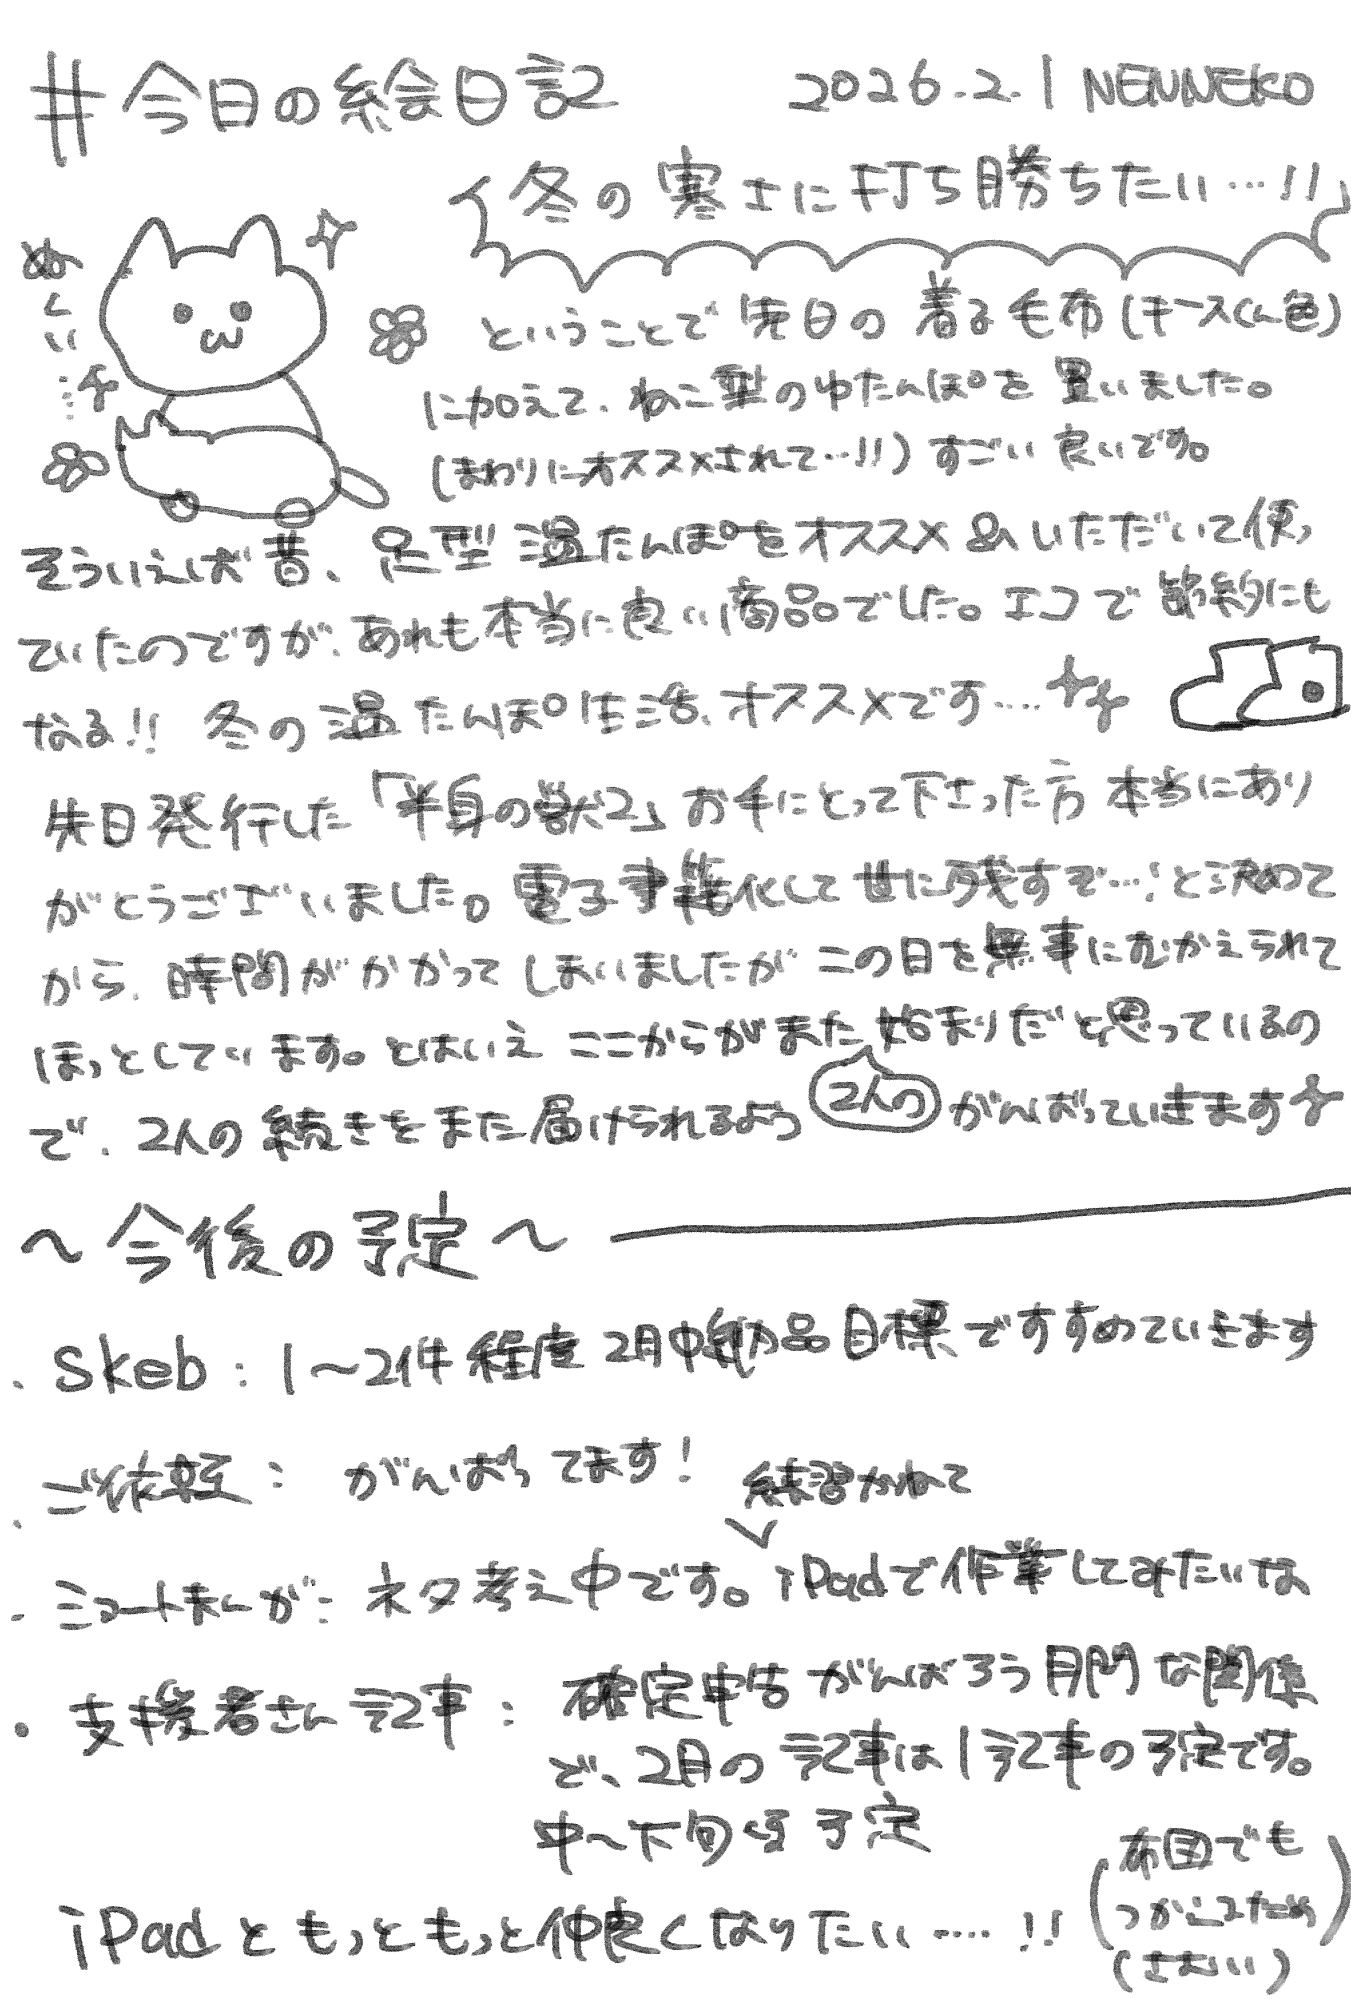 #今日の絵日記 2026.2.1 NENNEKO
冬の寒さに打ち勝ちたい…!!
ぬくい…
ということで先日の着る毛布(キースくん色)
に加えて、ねこ型のゆたんぽを買いました。
(まわりにオススメされて…!!)すごい良いです。
そういえば昔、足型湯たんぽをオススメいただいて使っ
ていたのですが、あれも本当に良い商品でした。エコで節約にも
なる!! 冬の湯たんぽ生活、オススメです….
先日発行した「半身の獣2」お手にとって下さった方本当にあり
がとうございました。電子書籍化して世に残すぞ…!と決めて
から、時間がかかってしまいましたがこの日を無事にむかえられて
ほっとしています。とはいえここからがまた始まりだと思っているの
で、2人の続きをまた届けられるよう 2人の がんばっていきます
〜今後の予定〜
・Skeb:1〜2件程度2月中納品目標ですすめていきます
・ご依頼: がんばってます!
練習かねて
・ショートまんが: ネタ考え中です。iPadで作業してみたいな
・支援者さん記事: 確定申告がんばろう月間な関係
で、2月の記事は1記事の予定です。
中〜下旬頃予定
iPadともっともっと仲良くなりたい….!!
(布団でも
つかいこみため
(さむい))